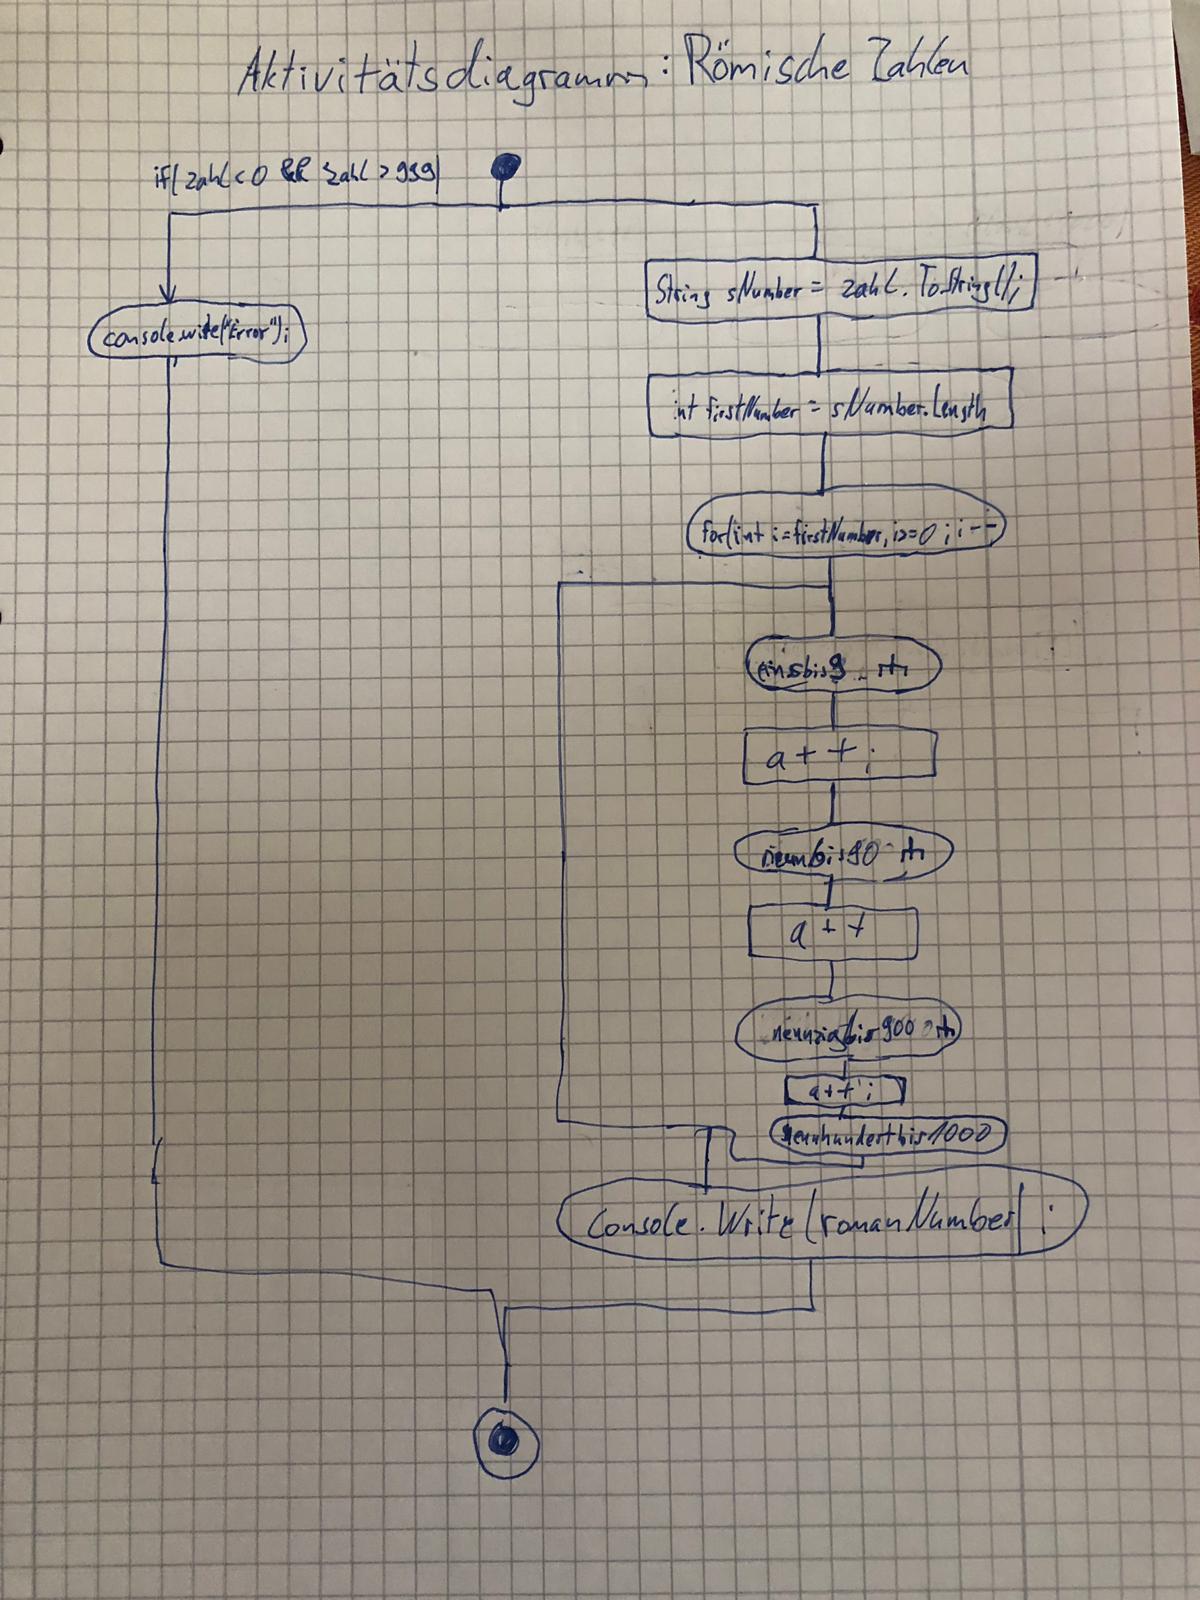 Aktivitätsdiagramm: Römische Zahlen
if(zahl<0 && zahl>999)
console.write("Error");
String sNumber = zahl.ToString();
int firstNumber = sNumber.Length
for(int i=firstNumber, i>=0; i--
einsbis9
a++;
neunbis90
a++
neunzigbis900
a++;
neunhundertbis1000
Console.Write(romanNumber);